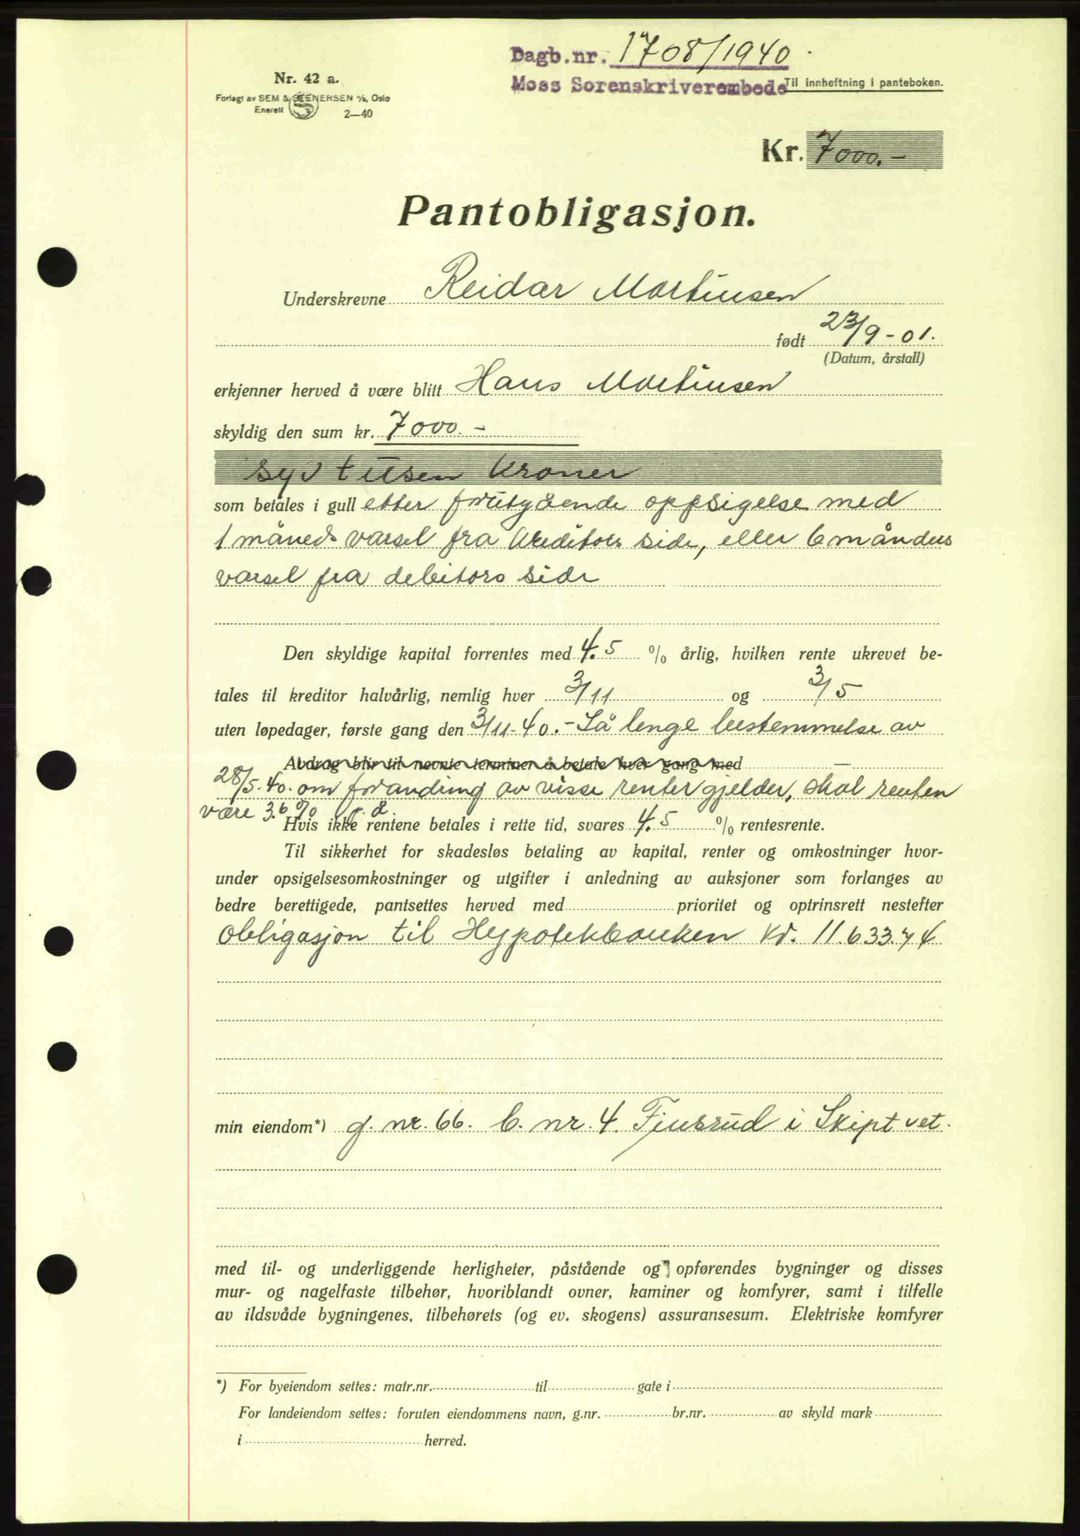 Dagb.nr. 1708/1940
Moss Sorenskriverembede
Til innheftning i panteboken.
Nr. 42 a.
Forlagt av SEM & STENERSEN A/S, Oslo
Enerett
2—40
Kr. 7000.-
Pantobligasjon.
Underskrevne Reidar Martinsen
født 23/9-01.
(Datum, årstall)
erkjenner herved å være blitt Hans Martinsen
skyldig den sum kr. 7000.-
syv tusen kroner
som betales i gull etter forutgående oppsigelse med
1 måneds varsel fra kreditors side, eller 6 måneders
varsel fra debitors side
Den skyldige kapital forrentes med 4.5 % årlig, hvilken rente ukrevet be-
tales til kreditor halvårlig, nemlig hver 3/11 og 3/5
uten løpedager, første gang den 3/11-40.- Så lenge bestemmelse av
Avdrag blir til nevnte terminer å betale hver gang med
28/5-40. om forandring av visse renter gjelder, skal renten
være 3.6 % p. a.
Hvis ikke rentene betales i rette tid, svares 4.5 % rentesrente.
Til sikkerhet for skadesløs betaling av kapital, renter og omkostninger hvor-
under opsigelsesomkostninger og utgifter i anledning av auksjoner som forlanges av
bedre berettigede, pantsettes herved med prioritet og optrinsrett nestefter
obligasjon til Hypotekbanken kr. 11.633.74
min eiendom*) g. nr. 66. b. nr. 4. Finsrud i Skiptvet.
med til- og underliggende herligheter, påstående og opførendes bygninger og disses
mur- og nagelfaste tilbehør, hvoriblandt ovner, kaminer og komfyrer, samt i tilfelle
av ildsvåde bygningenes, tilbehørets (og ev. skogens) assuransesum. Elektriske komfyrer
*) For byeiendom settes: matr.nr. til gate i
For landeiendom settes: foruten eiendommens navn, g.nr. br.nr. av skyld mark
i herred.